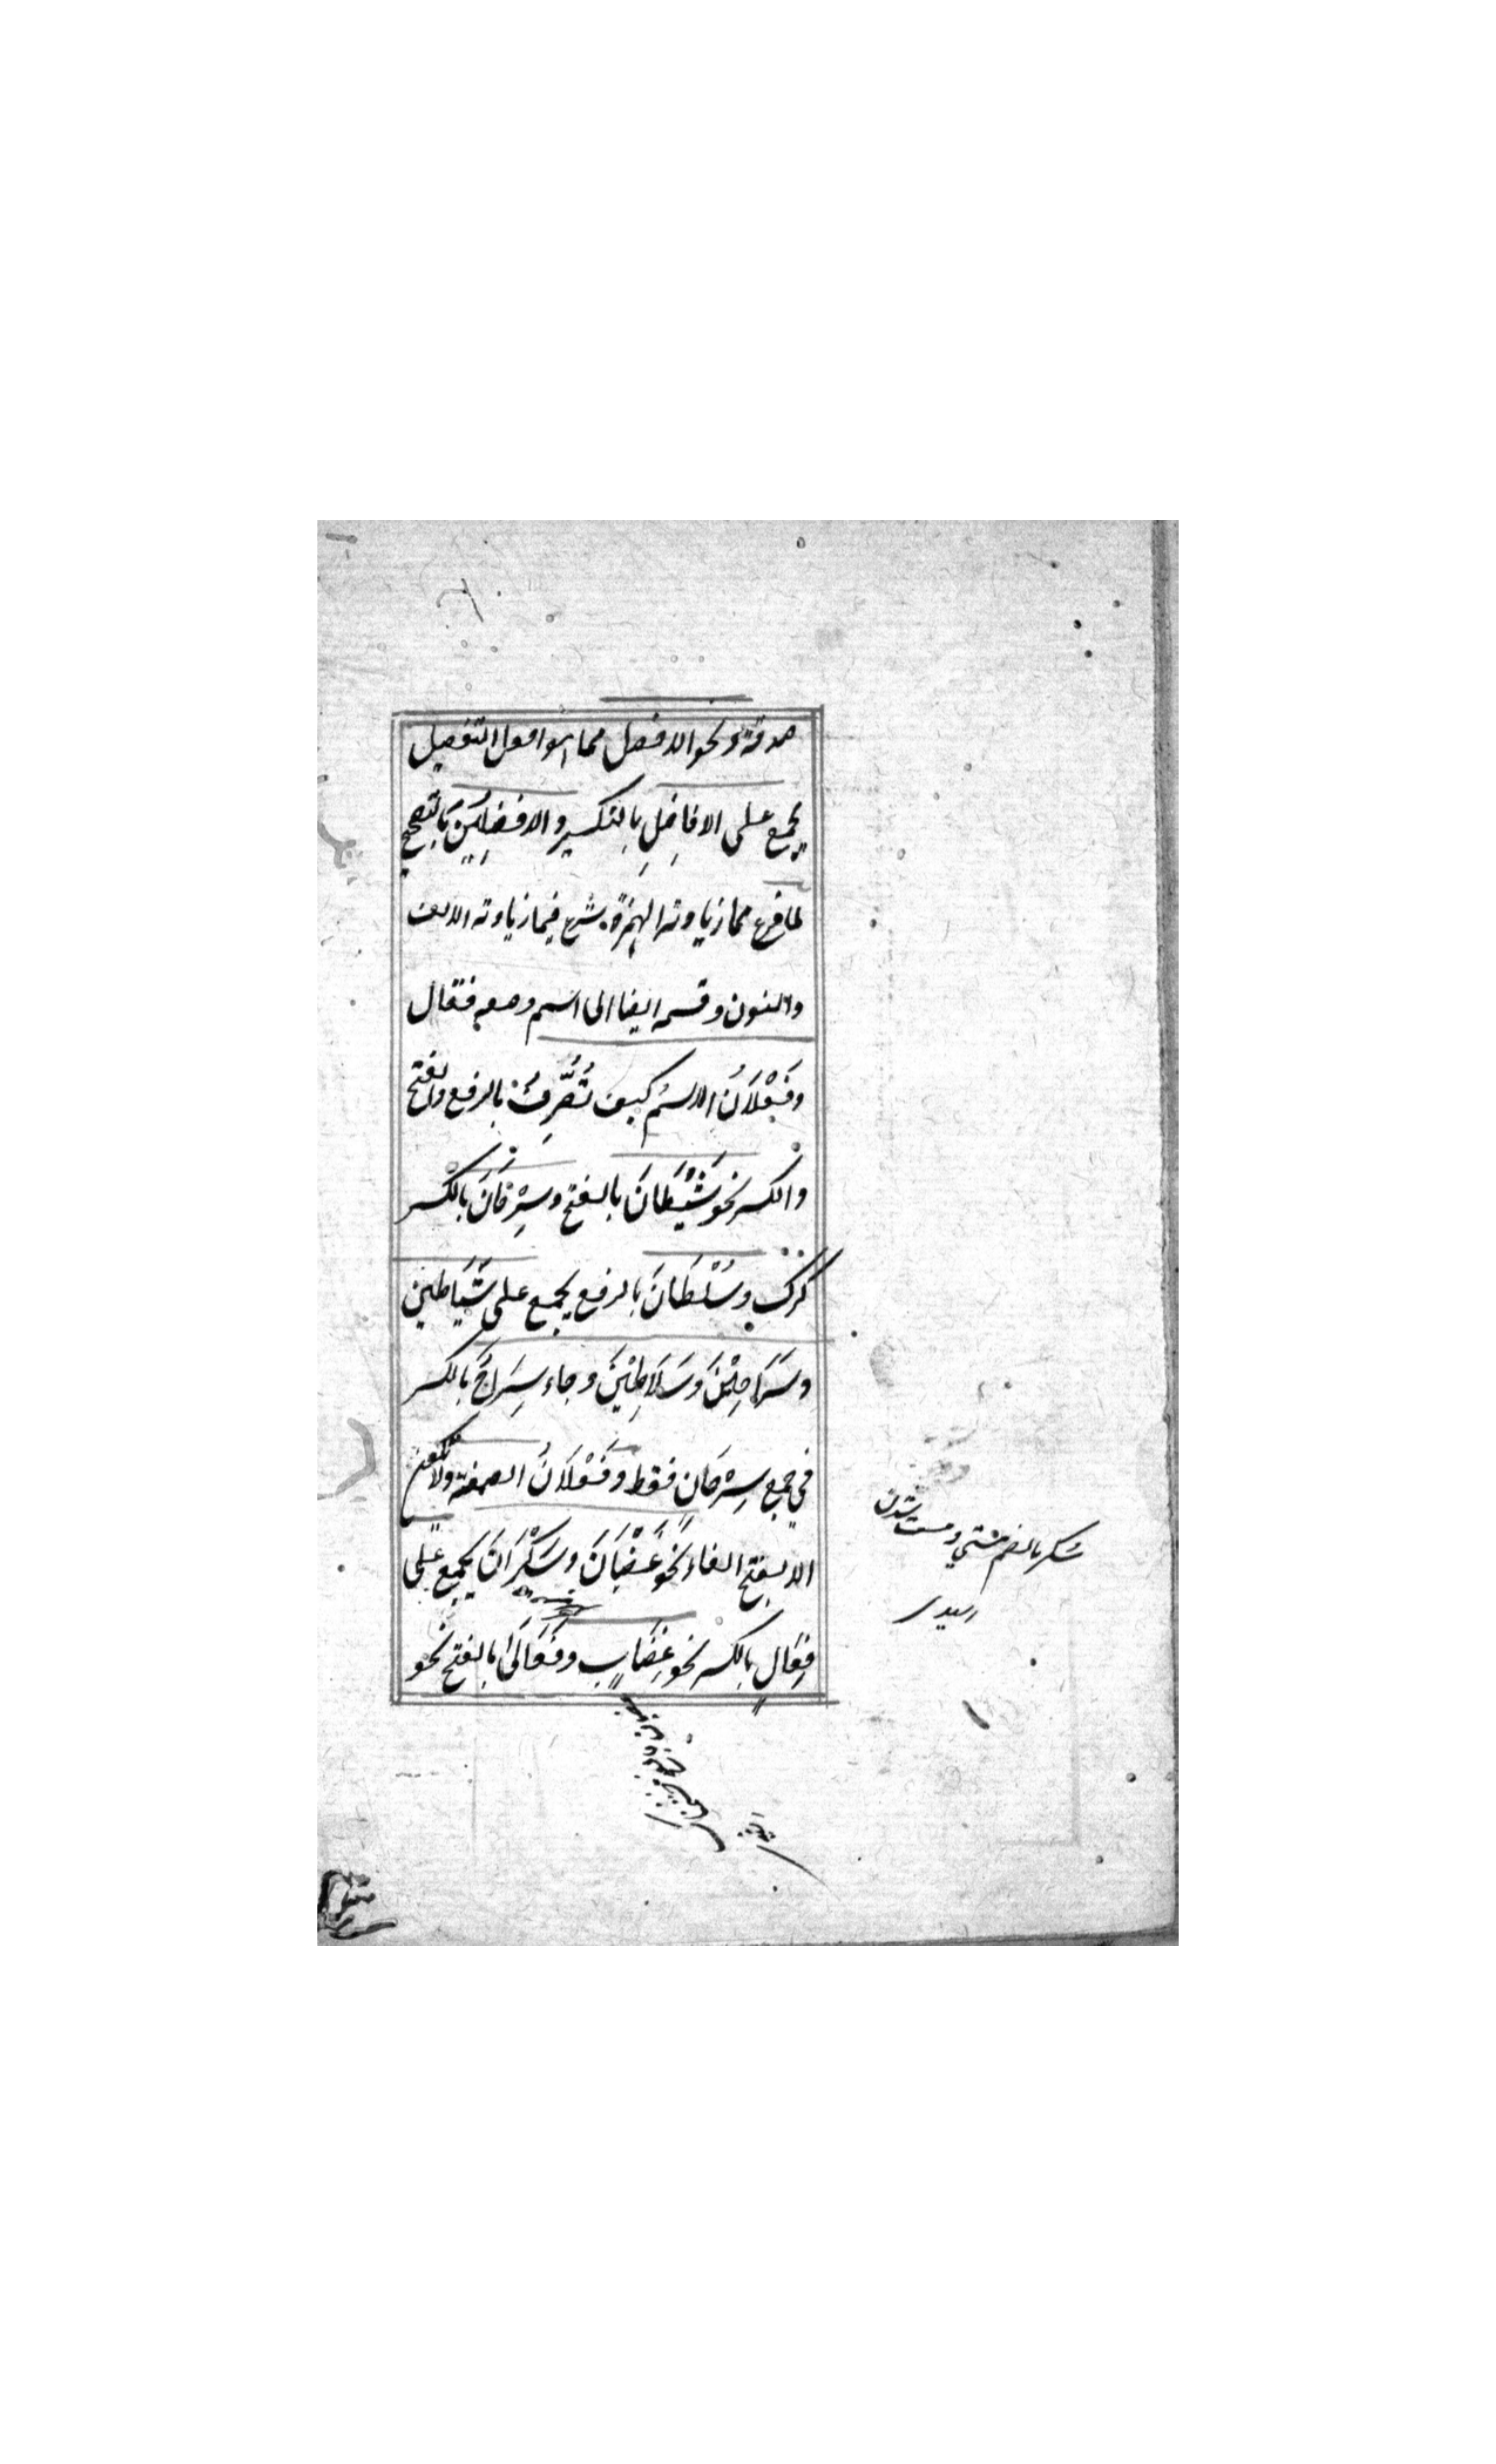 صدقة ونحو الافضل مما هو افعل التفضيل
يجمع على الافاضِلِ بِالتكسيرِ والافضَلِيْنَ بَالتصحيح
لما فرغ مما زيادته الهمزة شرع فيما زيادته الالف
والنون وقسمه ايضا الى اسم وصفه فقال
وفَعْلَانُ الاسمُ كيف تُصُرِّفَ بالرفع والفتح
والكسر نحو شَيْطَانَ بالفتح وسِرْحَانَ بالكسر
كرك وسُلْطَانَ بالرفع يجمع على شَيَاطين
وسَرَاحِيْنَ وسَلَاطِيْنَ وجاء سِرَاحٌ بالكسر
في جمع سِرْحَانٍ فقط وفَعْلَانُ الصفة ولا تكون
الا بفتح الفاء نحو غَضْبَانَ وسَكْرَانَ يجمع على
فِعَالٍ بالكسر نحو غِضَابٍ وفَعَالَىٰ بالفتح نحو
سكر بالضم مستي ومست شدن